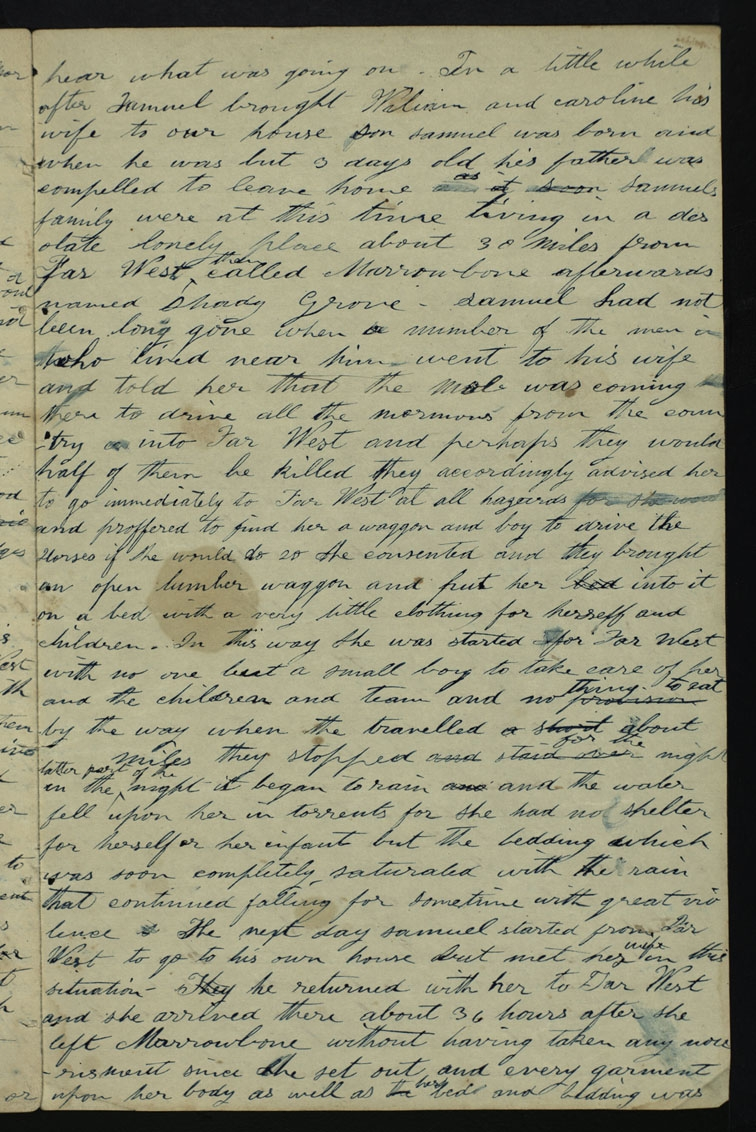 hear what was going on. In a little while
after Samuel brought William and caroline his
wife to our house son samuel was born and
when he was but 3 days old his father was
compelled to leave home as it soon Samuels
family were at this time living in a des
olate lonely place about 30 miles from
Far West, then called Marrowbone afterwards
named Shady Grove - Samuel had not
been long gone when a number of the men
who lived near him went to his wife
and told her that the mob was coming
there to drive all the mormons from the coun
-try into Far West and perhaps they would
half of them be killed they accordingly advised her
to go immediately to Far West at all hazards for she would
and proffered to find her a waggon and boy to drive the
Horses if she would do so She consented and they brought
an open lumber waggon and put her bed into it
on a bed with a very little clothing for herself and
children. In this way she was started for Far West
with no one but a small boy to take care of her
and the children and team and no provision thing to eat
by the way when the travelled a short about
miles they stopped and staid over for the night
in the latter part of the night it began to rain and and the water
fell upon her in torrents for she had no shelter
for herself or her infant but the bedding which
was soon completely saturated with the rain
that continued falling for sometime with great vio
lence & The next day samuel started from Far
West to go to his own house but met her wife in this
situation - They he returned with her to Far West
and she arrived there about 36 hours after she
left Marrowbone without having taken any nou
-risment since she set out and every garment
upon her body as well as the her bed and bedding was